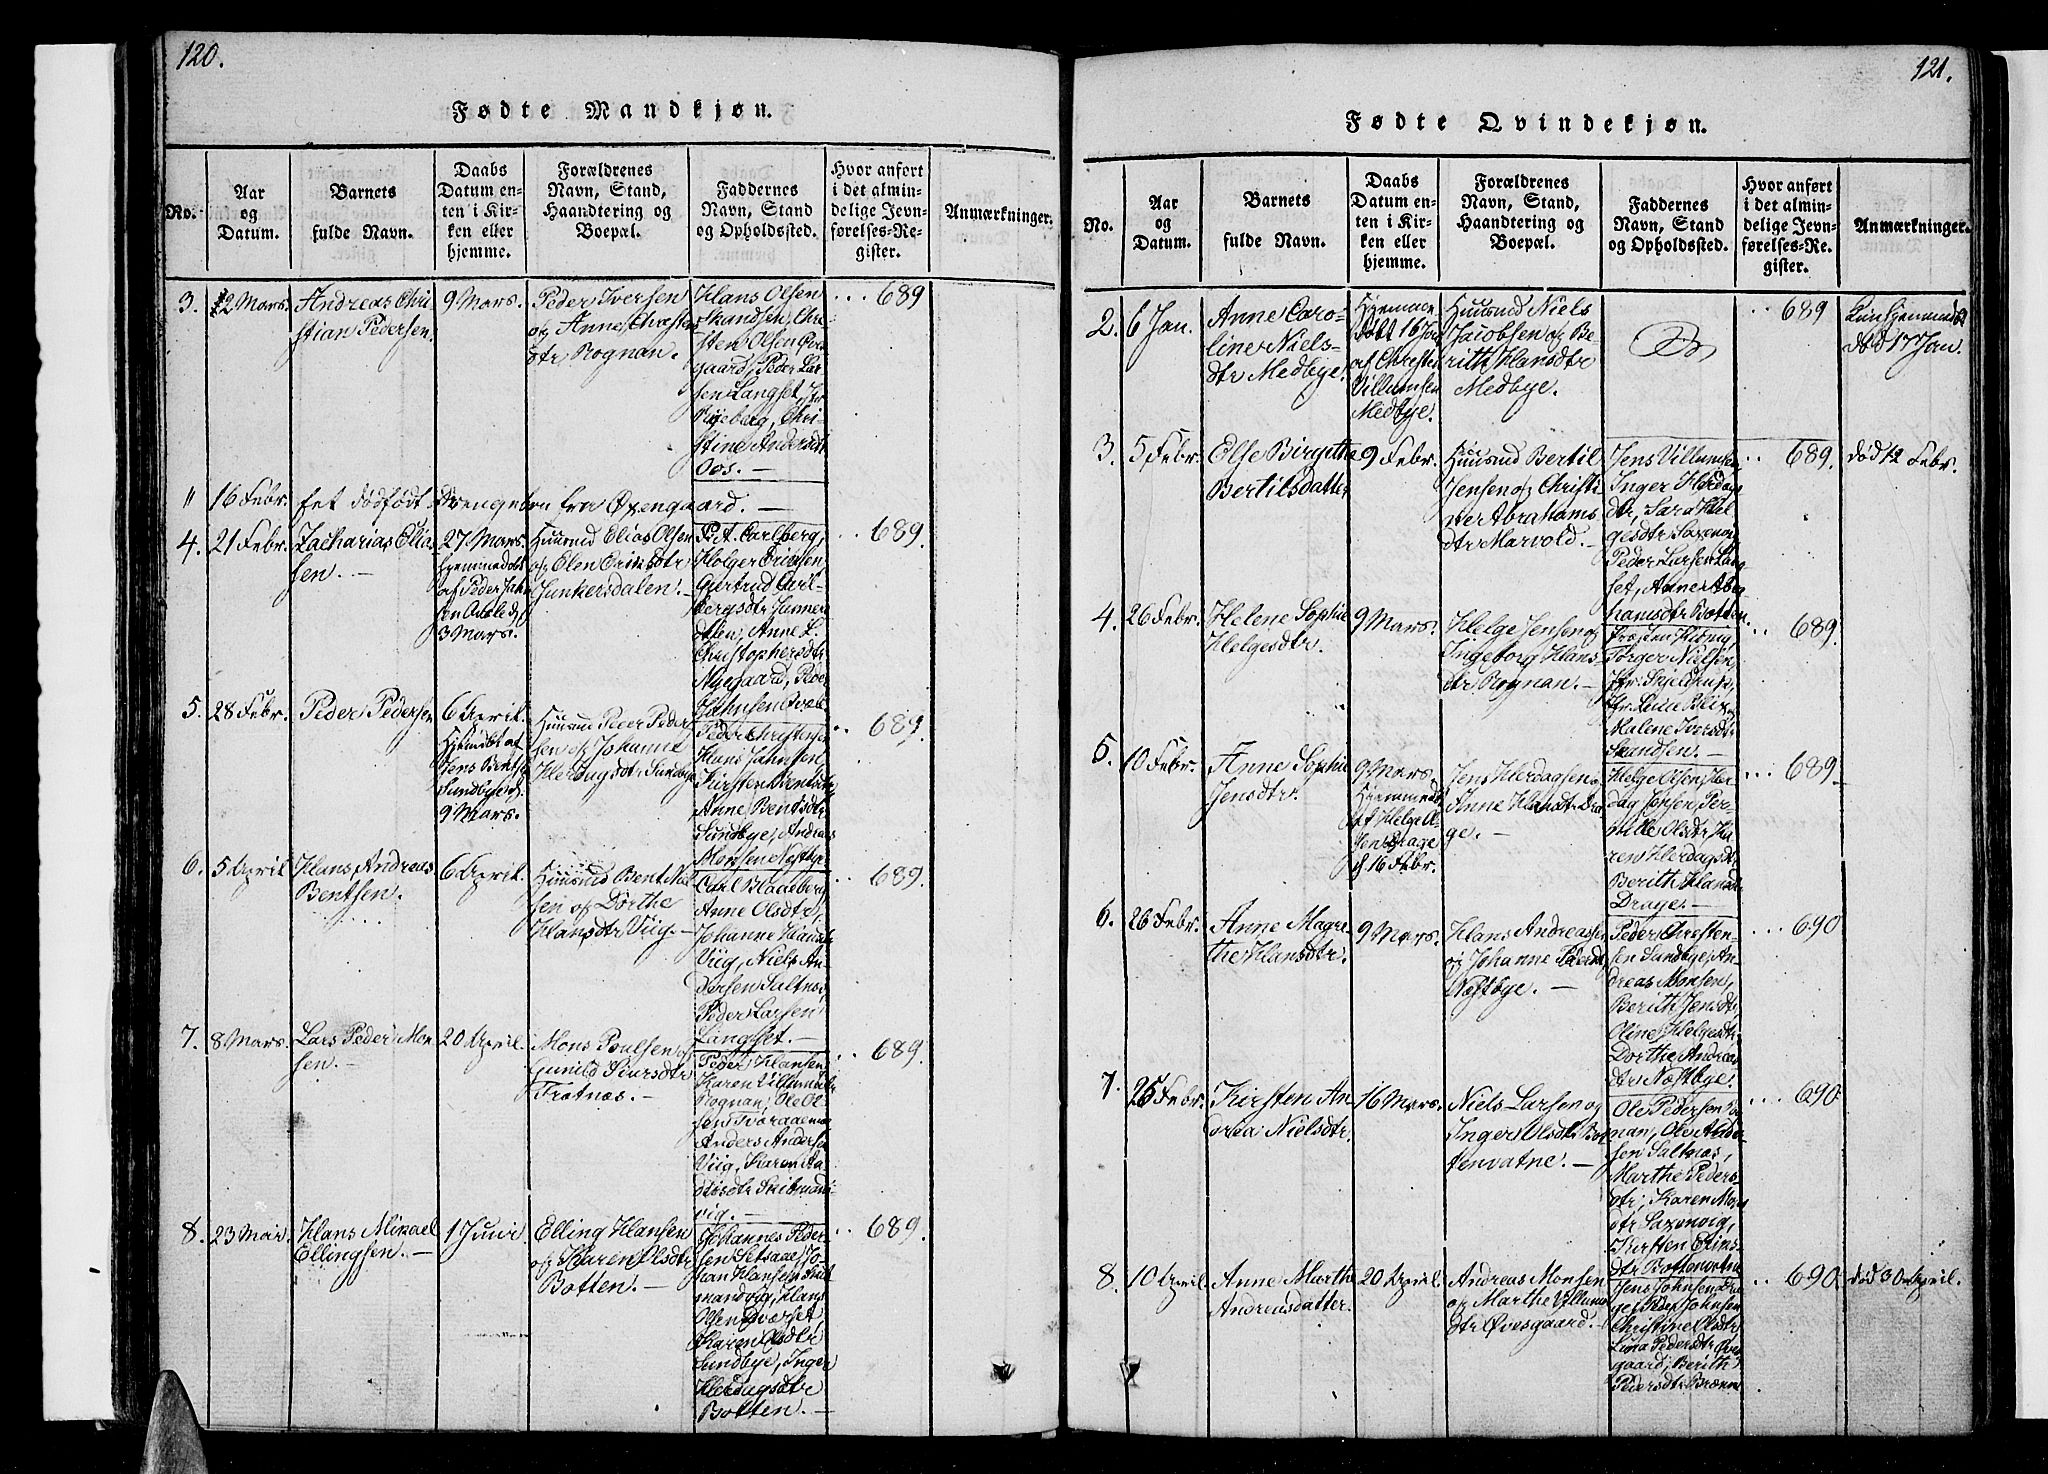 120.
Fødte Mandkjøn.
No.
Aar
og
Datum.
Barnets
fulde Navn.
Daabs
Datum en-
ten i Kir-
ken eller
hjemme.
Forældrenes
Navn, Stand,
Haandtering og
Boepæl.
Faddernes
Navn, Stand
og Opholdssted.
Hvor anført
i det almin-
delige Jevn-
førelses-Re-
gister.
Anmærkninger.
3.
12 Mars.
Andreas Chri
stian Pedersen.
9 Mars.
Peder Iversen
og Anne Christens
dtr Rognan.
Hans Olsen
Skandsen, Chri
sten Olsen
gaard, Peder Lar
sen Langset, Jfr
Chri
stine Andersdtr
Oos. —
689
"
16 Febr.
Et dødfødt Drengebn fra Øxengaard. —
4.
21 Febr.
Zacharias Elia
sen. —
27 Mars.
Hjemmedøbt
af Peder Joh
sen
3 Mars.
Huusmd Elias Olsen
og Elen Eriksdtr
Junkersdalen. —
P. A. Carlberg,
Holger Erichsen,
Gjertrud Carl-
bergsdtr Junkers
dalen, Anne L.
Christophersdtr
Nyegaard, Peder
Johnsen
689.
5.
28 Febr.
Peder Pedersen
6 April.
Hjemdbt af
Jens Bents
Sundbye d.
9 Mars.
Huusmd Peder Peder
sen og Johanne
Herdagsdtr Sundbye
Peder Christensen
Hans Johnsen
Kirsten Bentsdtr,
Anne Bentsdtr
Sundbye, Andreas
Monsen Nestbye
689.
6.
5 April
Hans Andreas
Bentsen.
6 April.
Huusmd Bent Niel
sen og Dorthe
Hansdtr Viig. —
Carl Blaadberg
Anne Olsdtr,
Johanne Hansdtr
Viig, Niels An
dersen Saltnes,
Peder Larsen
Langset. —
689.
7.
8 Mars.
Lars Peder Mon
sen. —
20 April.
Mons Poulsen og
Gunild Siursdtr
Trotnæs. —
Peder Hansen,
Karen Villumsdtr
Rognan, Ole Ol
sen
Anders Andersen
Viig, Karen
dtr
vig. —
689.
8.
23 Mai.
Hans Mikael
Ellingsen. —
1 Juni
Elling Hansen
og Karen Olsdtr
Botten. —
Johannes Peder
sen Setsaae, Jo
han Hansen
mandvig, Hans
Olsen
Karen Olsdtr
Sundbye, Inger
Herdagsdtr
Botten. —
689.
121.
Fødte Qvindekjøn.
No.
Aar
og
Datum.
Barnets
fulde Navn.
Daabs
Datum en-
ten i Kir-
ken eller
hjemme.
Forældrenes
Navn, Stand,
Haandtering og
Boepæl.
Faddernes
Navn, Stand
og Opholdssted.
Hvor anført
i det almin-
delige Jevn-
førelses-Re-
gister.
Anmærkninger.
2.
6 Jan.
Anne Caro-
line Niels-
dtr Medbye.
Hjemme
døbt 16 Jan
af Christen
Villumsen
Medbye.
Huusmd Niels
Jacobsen og Be-
rith Hansdtr
Medbye.
689
død 17 Jan.
3.
5 Febr.
Else Birgitha
Bertilsdatter
9 Febr.
Huusmd Bertil
Jensen og Christi
ne Abrahams
dtr Marvold. —
Jens Villumsen,
Inger Herdags
dtr, Sara Hel
gesdtr Saxenvig
Peder Larsen Lang
set, Anne Abra
hamsdtr Botten.
689.
død 12 Febr.
4.
26 Febr.
Helene Sophie
Helgesdtr.
9 Mars.
Helge Jensen og
Ingeborg Hans
dtr Rognan. —
Torger Nielsen,
Malene Iversdtr
Skandsen. —
689.
5.
10 Febr.
Anne Sophie
Jensdtr.
9 Mars.
Hjemmedbt
af Helge Ol
sen Drage
d. 16 Febr.
Jens Herdagsen og
Anne Hansdtr Dra
ge. —
Helge Olsen, Her
dag Jonsen, Per-
nille Olsdtr, Ka
ren Herdagsdtr,
Berith Hansdtr
Drage. —
689.
6.
26 Febr.
Anne Magre
the Hansdtr.
9 Mars.
Hans Andreassen
og Johanne Pedersdtr
Nestbye. —
Peder Christen-
sen Sundbye, An
dreas Monsen,
Berith Jensdtr,
Oline Helgesdtr,
Dorthe Andreas
dtr Nestbye.
690
7.
25 Febr.
Kirsten An
drea Nielsdtr.
16 Mars.
Niels Larsen og
Inger Olsdtr Bot
tenvatne. —
Ole Pedersen Rog
nan, Ole Ander
sen Saltnæs,
Marthe Peders-
dtr, Karen Mons
dtr Saxenvig,
Kirsten Eriks-
dtr Bottenvatne
690.
8.
10 April.
Anne Marthe
Andreasdatter.
20 April.
Andreas Monsen
og Marthe Villums
dtr Øvesgaard. —
Jens Johnsen Dra
ge, Peder Johnsen
Christine Olsdtr
Lina Pedersdtr Øves
gaard, Berith
Pedersdtr Brænne
690.
død 30 April.